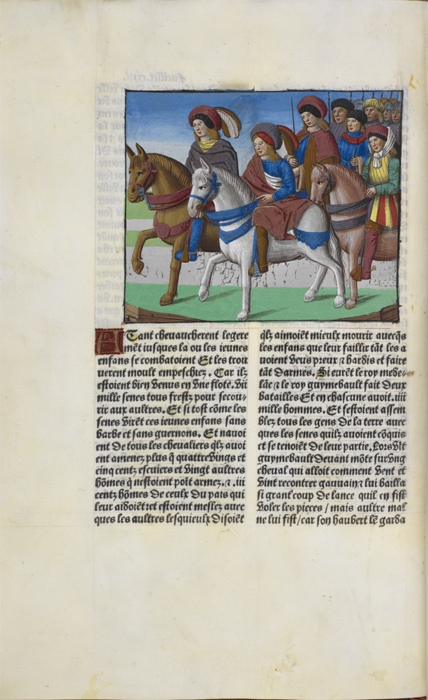 Tant chevaucherent legere
mēt iusques la ou les ieunes
enfans se combatoient Et les trou
verent moult empeschiez. Car ilz
estoient biē venus en vne flote. vii
mille senes tous fresz pour secou
rir aux aultres. Et si tost cōme les
senes virēt ces ieunes enfans sans
barbe et sans guernons. Et navoi
ent de tous les chevaliers qlz avoi
ent amenez plus q̄ quattrevings et
cinq centz escuiers et vingt aultres
hōmes q̄ nestoient poīt armez, ⁊ .iii
centz hōmes de ceulx du pais qui
leur aidoiēt: et estoient meslez avec
ques les aultres lesquieulx disoiēt
qlz aimoiēt mieulx mourir avecq̄s
les enfans que leur faillir tāt les a
voient veus preux ⁊ hardis et faire
tāt darmes. Si eurēt le roy mede-
lāc ⁊ le roy guymebault fait deux
batailles Et en chascune avoit .iiii
mille hommes. Et sestoient assem
blez tous les gens de la terre avec
ques les senes quilz avoient cōquis
et se tenoiēt de leur partie. Lors vīt
guymebault devant mōte sur vng
cheval qui alloit comment vent et
vint recontrer gauvain ⁊ lui bailla
si grant coup de lance quil en fist
voler les pieces / mais aultre mal
ne lui fist / car son haubert le garda